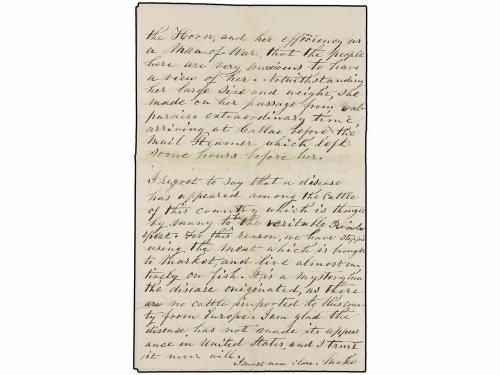 the Horn, and her efficiency as
a Man of War, that the people
here are very anxious to have
a view of her. Notwithstanding
her large size and weight, she
made on her passage from Val-
paraiso extraordinary time,
arriving at Callao before the
Mail Steamer which left
some hours before her.
I regret to say that a disease
has appeared among the Cattle
of this country which is thought
by many to be the veritable
pest. For this reason, we have stopped
using the meat which is brought
to market, and live almost en-
tirely on fish. It is a mystery how
the disease originated, as there
are no cattle imported to this coun-
ty from Europe. I am glad the
disease has not made its appear
ance in United States, and I trust
it never will.
I must now close. Make